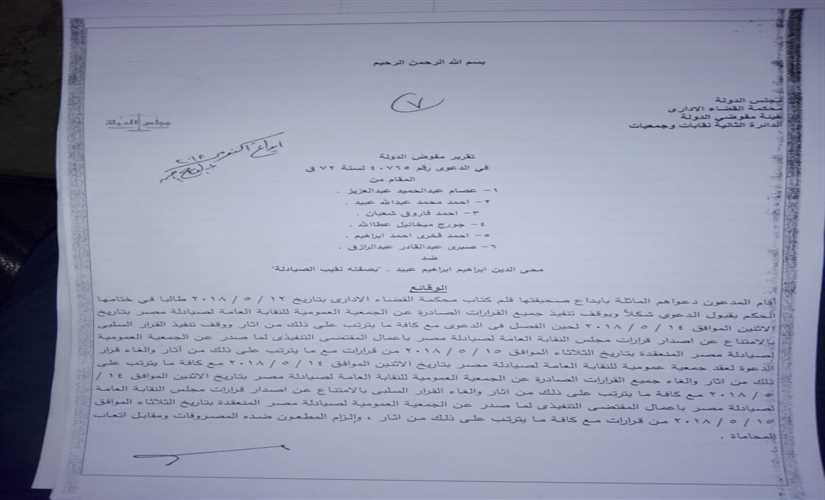 بسم الله الرحمن الرحيم
٧
مجلس الدولة
محكمة القضاء الادارى
هيئة مفوضي الدولة
الدائرة الثانية نقابات وجمعيات
مجلس الدولة
ايداع اكتوبر ٢٠١٨
تقرير مفوض الدولة
في الدعوى رقم ٤٠٧٦٥ لسنة ٧٢ ق
المقام من
١- عصام عبدالحميد عبدالعزيز .
٢- احمد محمد عبدالله عبيد .
٣- احمد فاروق شعبان .
٤- جورج ميخائيل عطاالله .
٥- احمد فخرى احمد ابراهيم .
٦- صبرى عبدالقادر عبدالرازق .
ضد
محى الدين ابراهيم ابراهيم عبيد . "بصفته نقيب الصيادلة"
الوقائع
أقام المدعون دعواهم الماثلة بايداع صحيفتها قلم كتاب محكمة القضاء الادارى بتاريخ ١٢ / ٥ / ٢٠١٨ طالبا في ختامها
الحكم بقبول الدعوي شكلاً وبوقف تنفيذ جميع القرارات الصادرة عن الجمعية العمومية للنقابة العامة لصيادلة مصر بتاريخ
الاثنين الموافق ١٤ / ٥ / ٢٠١٨ لحين الفصل فى الدعوى مع كافة ما يترتب على ذلك من اثار ووقف تنفيذ القرار السلبي
بالامتناع عن اصدار قرارات مجلس النقابة العامة لصيادلة مصر باعمال المقتضى التنفيذى لما صدر عن الجمعية العمومية
لصيادلة مصر المنعقدة بتاريخ الثلاثاء الموافق ١٥ / ٥ / ٢٠١٨ من قرارات مع ما يترتب على ذلك من آثار وإلغاء قرار
الدعوة لعقد جمعية عمومية للنقابة العامة لصيادلة مصر بتاريخ الاثنين الموافق ١٤ / ٥ / ٢٠١٨ مع كافة ما يترتب على
ذلك من اثار والغاء جميع القرارات الصادرة عن الجمعية العمومية للنقابة العامة لصيادلة مصر بتاريخ الاثنين الموافق ١٤ /
٥ / ٢٠١٨ مع كافة ما يترتب على ذلك من اثار والغاء القرار السلبي بالامتناع عن اصدار قرارات مجلس النقابة العامة
لصيادلة مصر باعمال المقتضى التنفيذى لما صدر عن الجمعية العمومية لصيادلة مصر المنعقدة بتاريخ الثلاثاء الموافق
١٥ / ٥ / ٢٠١٨ من قرارات مع كافة ما يترتب على ذلك من اثار ، وإلزام المطعون ضده المصروفات ومقابل اتعاب
المحاماة .